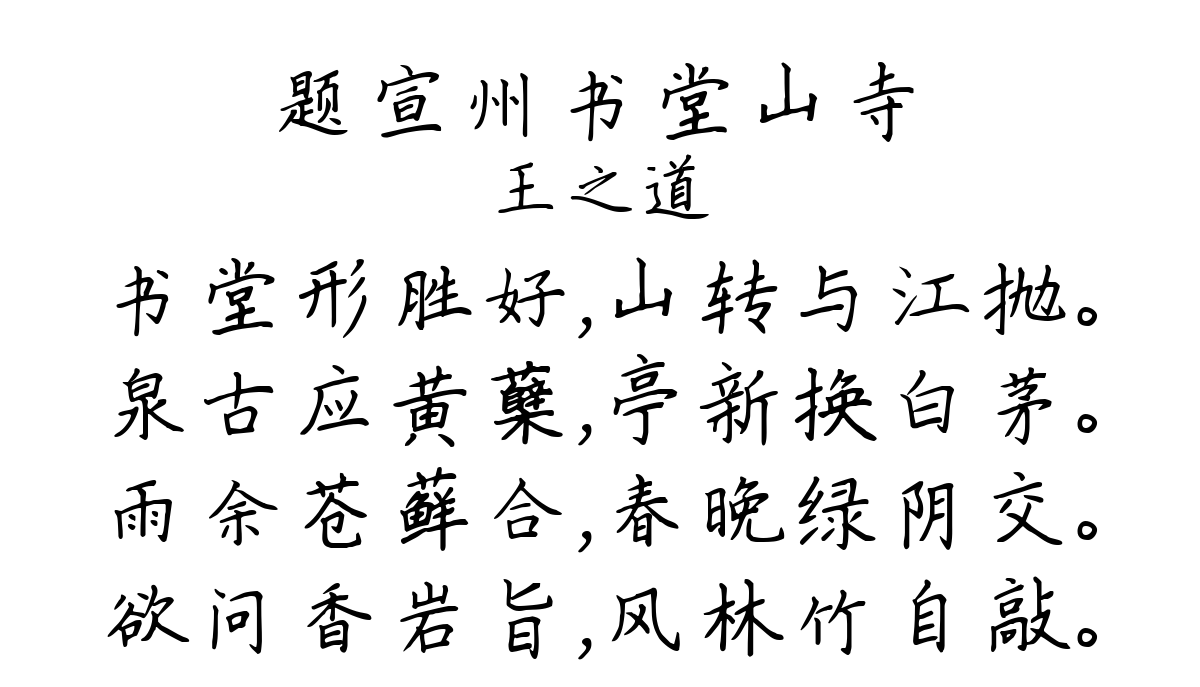 题宣州书堂山寺
王之道
书堂形胜好,山转与江抛。
泉古应黄蘖,亭新换白茅。
雨余苍藓合,春晚绿阴交。
欲问香岩旨,风林竹自敲。